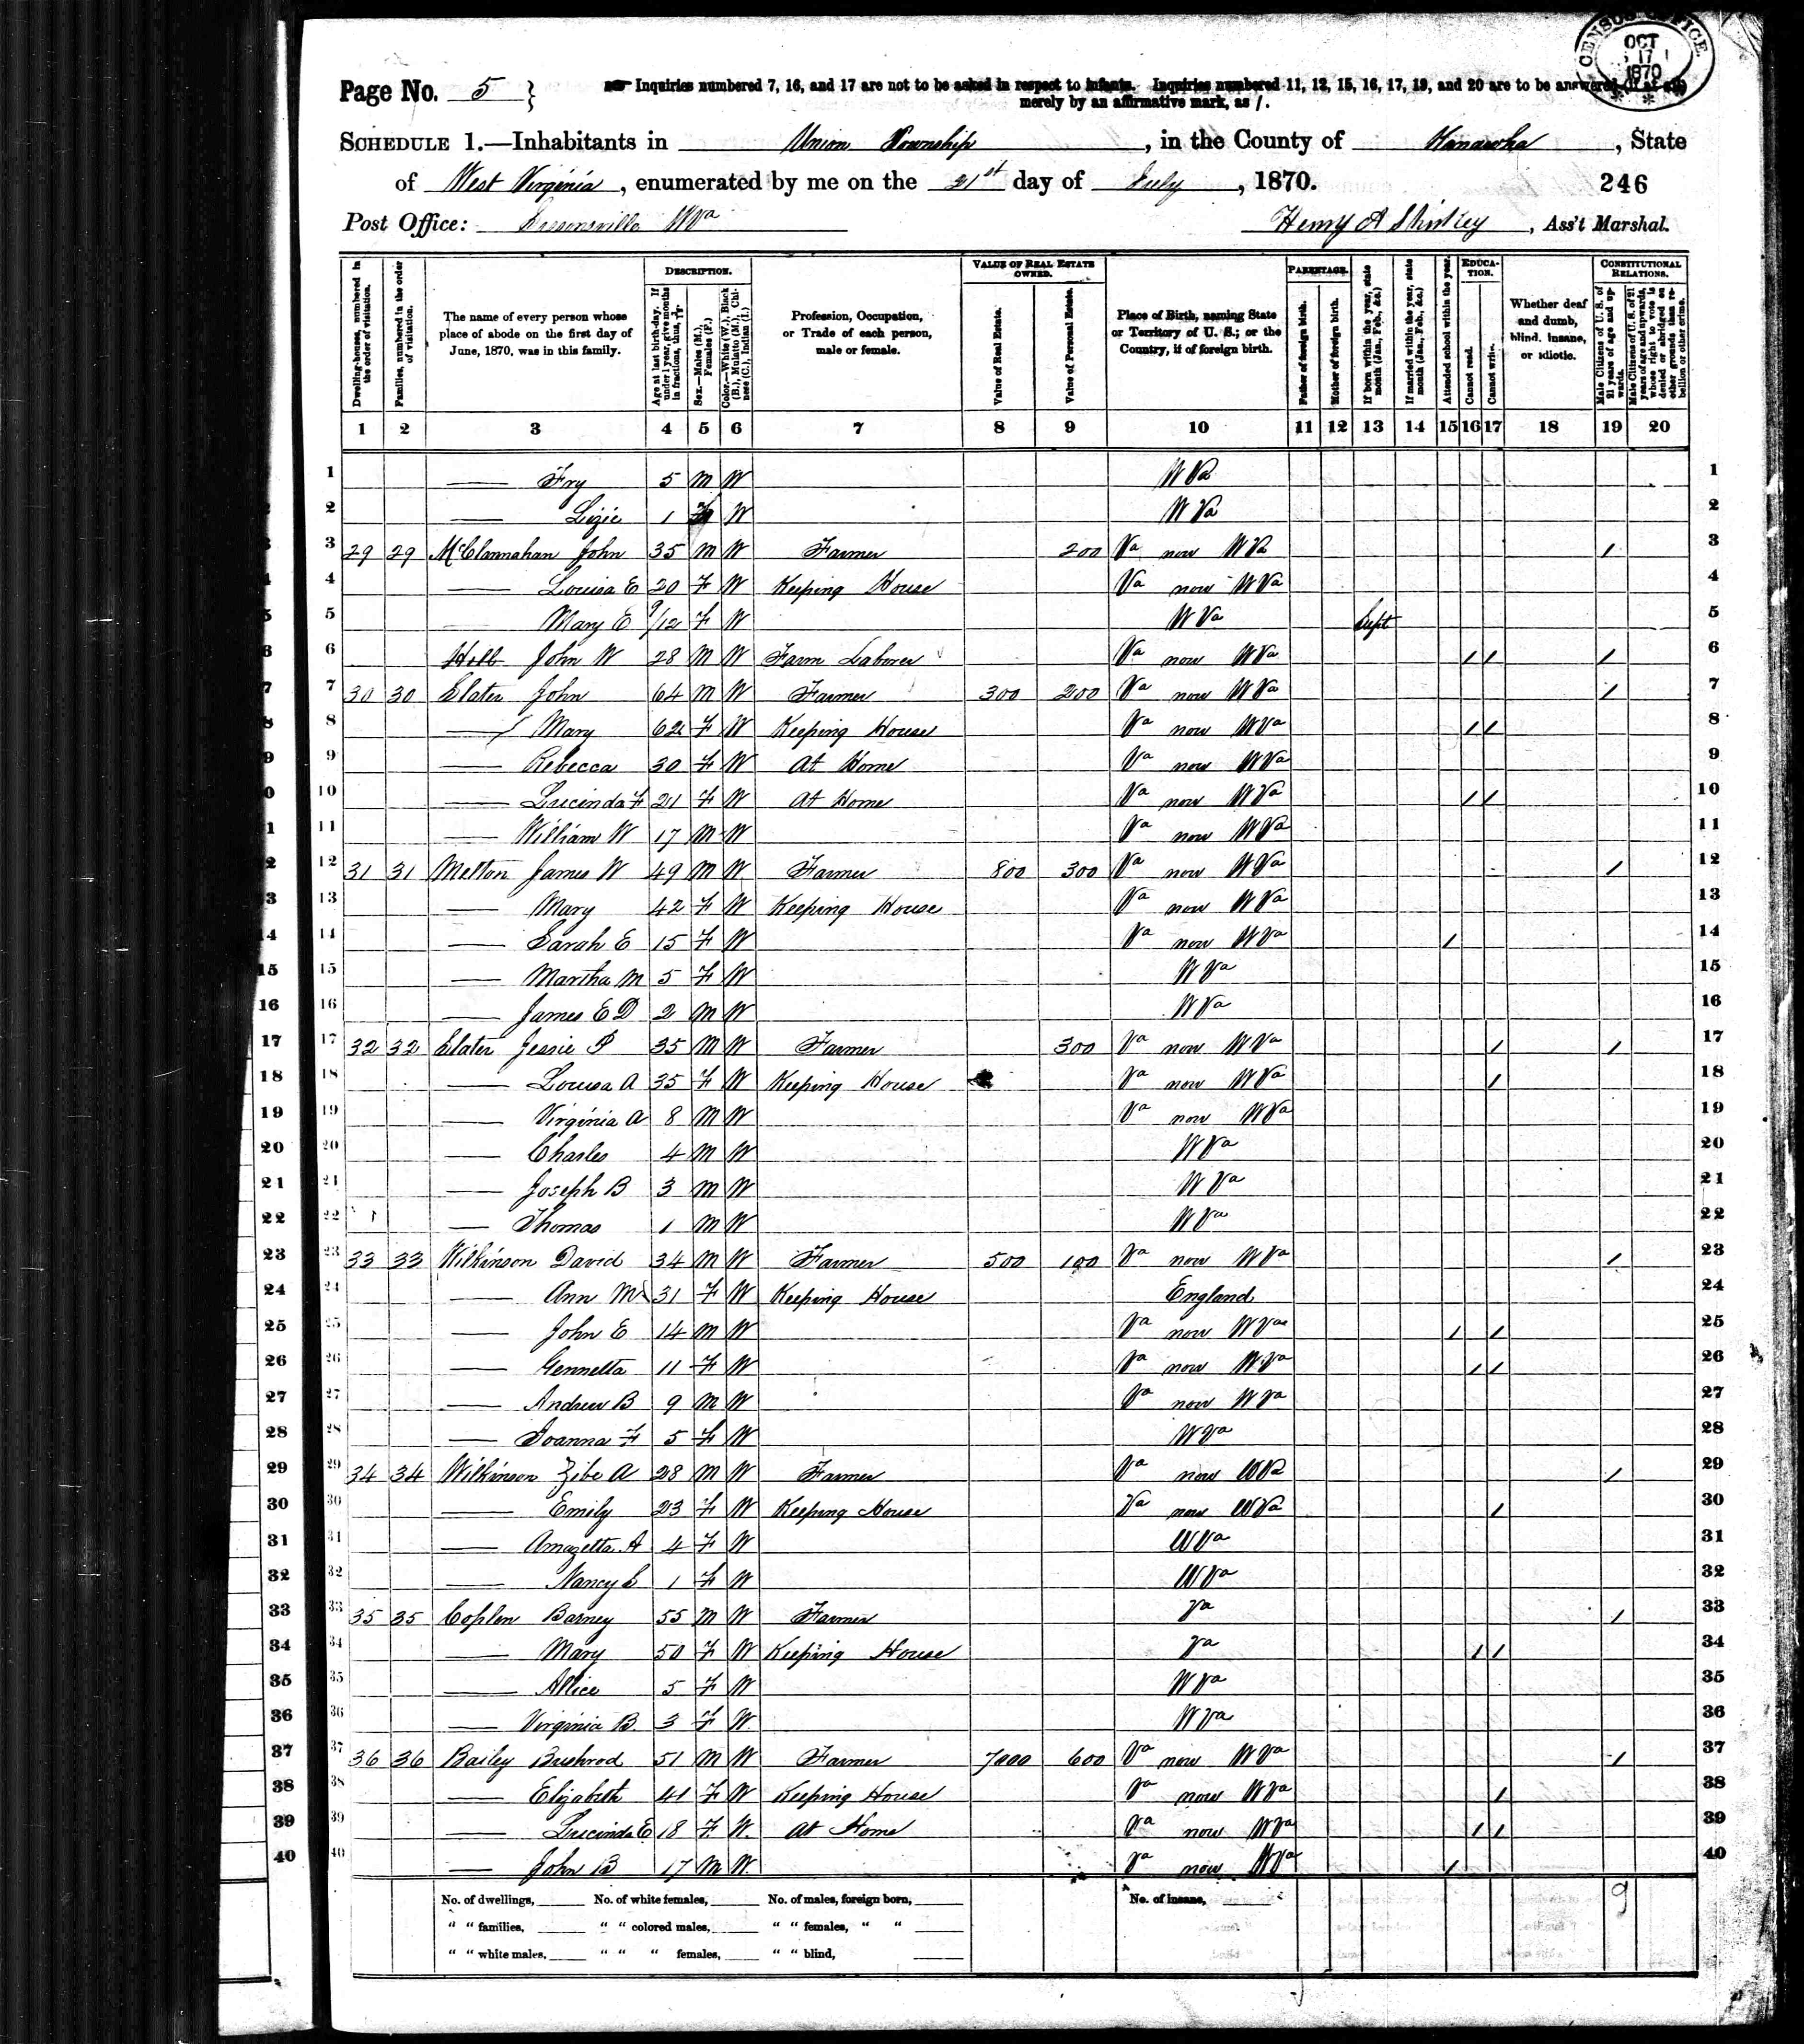 CENSUS OFFICE OCT 17 1870
Page No. 5 } Inquiries numbered 7, 16, and 17 are not to be asked in respect to infants. Inquiries numbered 11, 12, 15, 16, 17, 19, and 20 are to be answered (if at all)
merely by an affirmative mark, as /.
SCHEDULE 1.—Inhabitants in Union Township, in the County of Kanawha, State
of West Virginia, enumerated by me on the 21st day of July, 1870. 246
Post Office: WVa Henry A, Ass't Marshal.
Dwelling-houses, numbered in the order of visitation.
Families, numbered in the order of visitation.
The name of every person whose place of abode on the first day of June, 1870, was in this family.
DESCRIPTION.
Age at last birth-day. If under 1 year, give months in fractions, thus,
Sex.—Males (M.), Females (F.)
Color.—White (W.), Black (B.), Mulatto (M.), Chinese (C.), Indian (I.)
Profession, Occupation, or Trade of each person, male or female.
VALUE OF REAL ESTATE OWNED.
Value of Real Estate.
Value of Personal Estate.
Place of Birth, naming State or Territory of U. S.; or the Country, if of foreign birth.
PARENTAGE.
Father of foreign birth.
Mother of foreign birth.
If born within the year, state month (Jan., Feb., &c.)
If married within the year, state month (Jan., Feb., &c.)
Attended school within the year.
EDUCATION.
Cannot read.
Cannot write.
Whether deaf and dumb, blind, insane, or idiotic.
CONSTITUTIONAL RELATIONS.
Male Citizens of U. S. of 21 years of age and upwards.
Male Citizens of U. S. of 21 years of age and upwards, whose right to vote is denied or abridged on other grounds than rebellion or other crime.
1 2 3 4 5 6 7 8 9 10 11 12 13 14 15 16 17 18 19 20
1 — Fry 5 M W W Va 1
2 — Lizie 1 F W W Va 2
3 29 29 McClannahan John 35 M W Farmer 200 Va now W Va / 3
4 — Louisa E 20 F W Keeping House Va now W Va 4
5 — Mary E 9/12 F W W Va Sept 5
6 John W 28 M W Farm Laborer Va now W Va / / / 6
7 30 30 Slater John 64 M W Farmer 300 200 Va now W Va / 7
8 — Mary 62 F W Keeping House Va now W Va / / 8
9 — Rebecca 30 F W At Home Va now W Va 9
10 — Lucinda F 21 F W At Home Va now W Va / / 10
11 — William W 17 M W Va now W Va 11
12 31 31 Melton James W 49 M W Farmer 800 300 Va now W Va / 12
13 — Mary 42 F W Keeping House Va now W Va 13
14 — Sarah E 15 F W Va now W Va / 14
15 — Martha M 5 F W W Va 15
16 — James E D 2 M W W Va 16
17 32 32 Slater Jessie P 35 M W Farmer 300 Va now W Va / / 17
18 — Louisa A 35 F W Keeping House Va now W Va / 18
19 — Virginia A 8 M W Va now W Va 19
20 — Charles 4 M W W Va 20
21 — Joseph B 3 M W W Va 21
22 — Thomas 1 M W W Va 22
23 33 33 Wilkinson David 34 M W Farmer 500 100 Va now W Va / 23
24 — Ann M 31 F W Keeping House England 24
25 — John E 14 M W Va now W Va / / 25
26 — Gennetta 11 F W Va now W Va / / 26
27 — Andrew B 9 M W Va now W Va 27
28 — Joanna F 5 F W W Va 28
29 34 34 Wilkinson Zibe A 28 M W Farmer Va now W Va / 29
30 — Emily 23 F W Keeping House Va now W Va / 30
31 — Amazetta A 4 F W W Va 31
32 — Nancy L 1 F W W Va 32
33 35 35 Coplen Barney 55 M W Farmer Va / 33
34 — Mary 50 F W Keeping House Va / / 34
35 — Allice 5 F W W Va 35
36 — Virginia B 3 F W W Va 36
37 36 36 Bailey Bushrod 51 M W Farmer 7000 600 Va now W Va / 37
38 — Elizabeth 41 F W Keeping House Va now W Va / 38
39 — Lucinda E 18 F W At Home Va now W Va / / 39
40 — John B 17 M W Va now W Va / 40
No. of dwellings, No. of white females, No. of males, foreign born, No. of insane, 9
" " families, " " colored males, " " females, " "
" " white males, " " " females, " " blind,